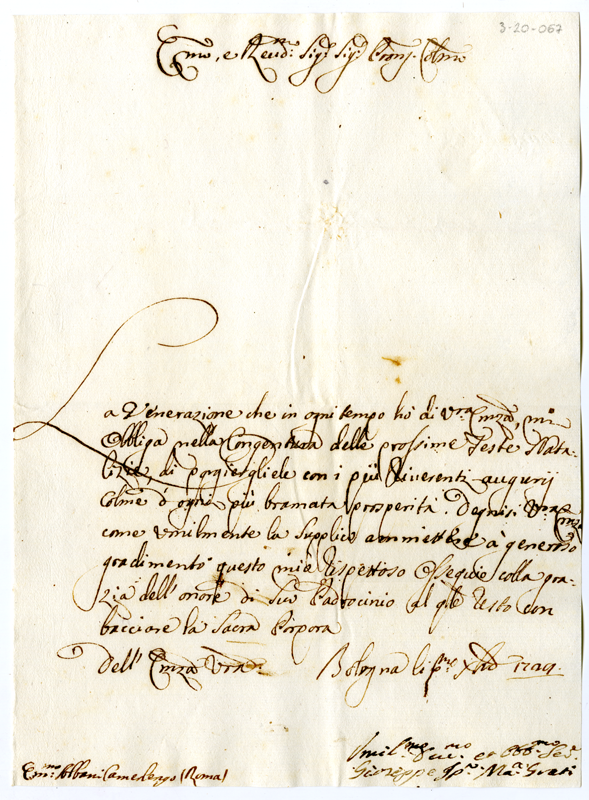 3-20-067
Emo, e Reud: Sig: Sig: Pron: Colmo
La Venerazione che in ogni tempo hò di Vra Emza, mi
Obliga nella Congentura delle prossime Feste Nata-
lizie, di porgiergliele con i più Riverenti augurij
Colme d'ogni più bramata prosperità. Degnisi Vra Emza
come umilmente la supplico ammettere à generoso
gradimento questo mio Rispettoso Ossequio colla gra-
zia dell'onore di suo Padrocinio al qle resto con
bacciare la Sacra Porpora
Dell' Emza Vra. Bologna li pmo Xbre 1729.
Umilmo Divmo et Obbmo Ser.
Emmo Albani Camerlengo (Roma) Giuseppe Ipo Ma Grati